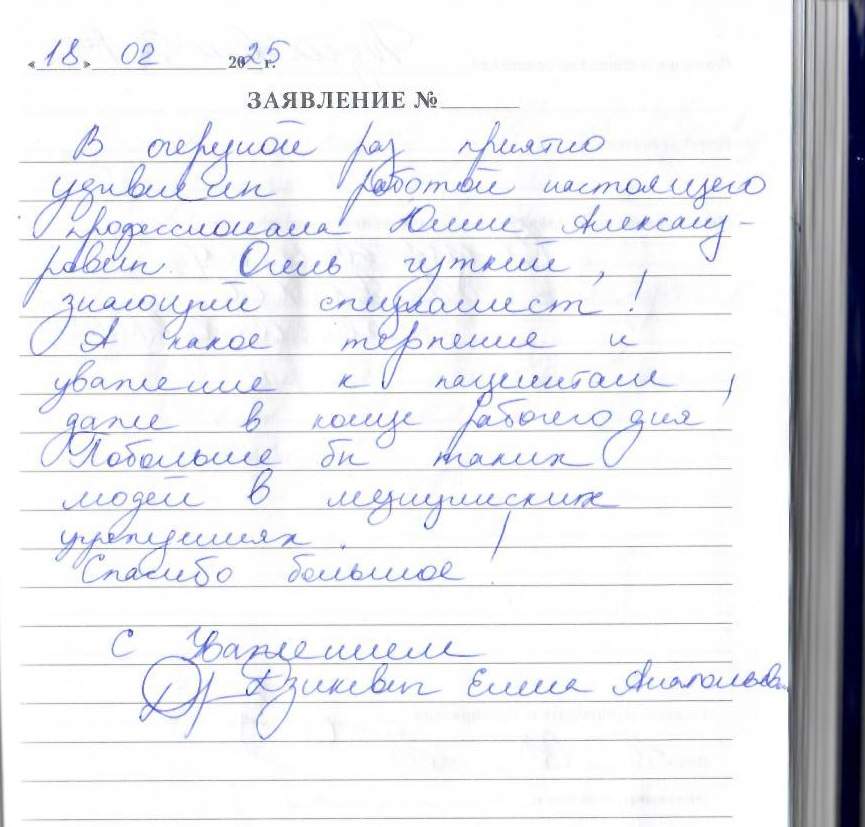 «18» 02 2025 г.
ЗАЯВЛЕНИЕ №
В очередной раз приятно
удивлен работой настоящего
профессионала Юлии Александ-
ровны. Очень чуткий,
знающий специалист!
А какое терпение и
уважение к пациентам,
даже в конце рабочего дня!
Побольше бы таких
людей в медицинских
учреждениях.
Спасибо большое!
С Уважением
Елена Анатольев